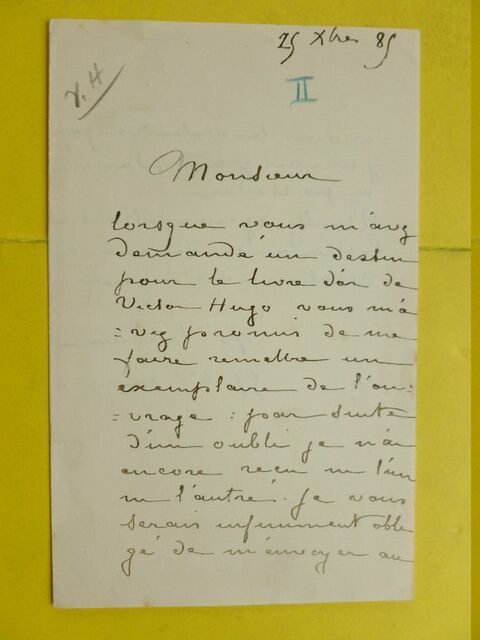 25 Xbre 85
V. H
II
Monsieur
lorsque vous m'avez
demandé un dessin
pour le livre d'or de
Victor Hugo vous m'a
=vez promis de me
faire remettre un
exemplaire de l'ou
=vrage : par suite
d'un oubli je n'ai
encore reçu ni l'un
ni l'autre. Je vous
serais infiniment obli
gé de m'envoyer au